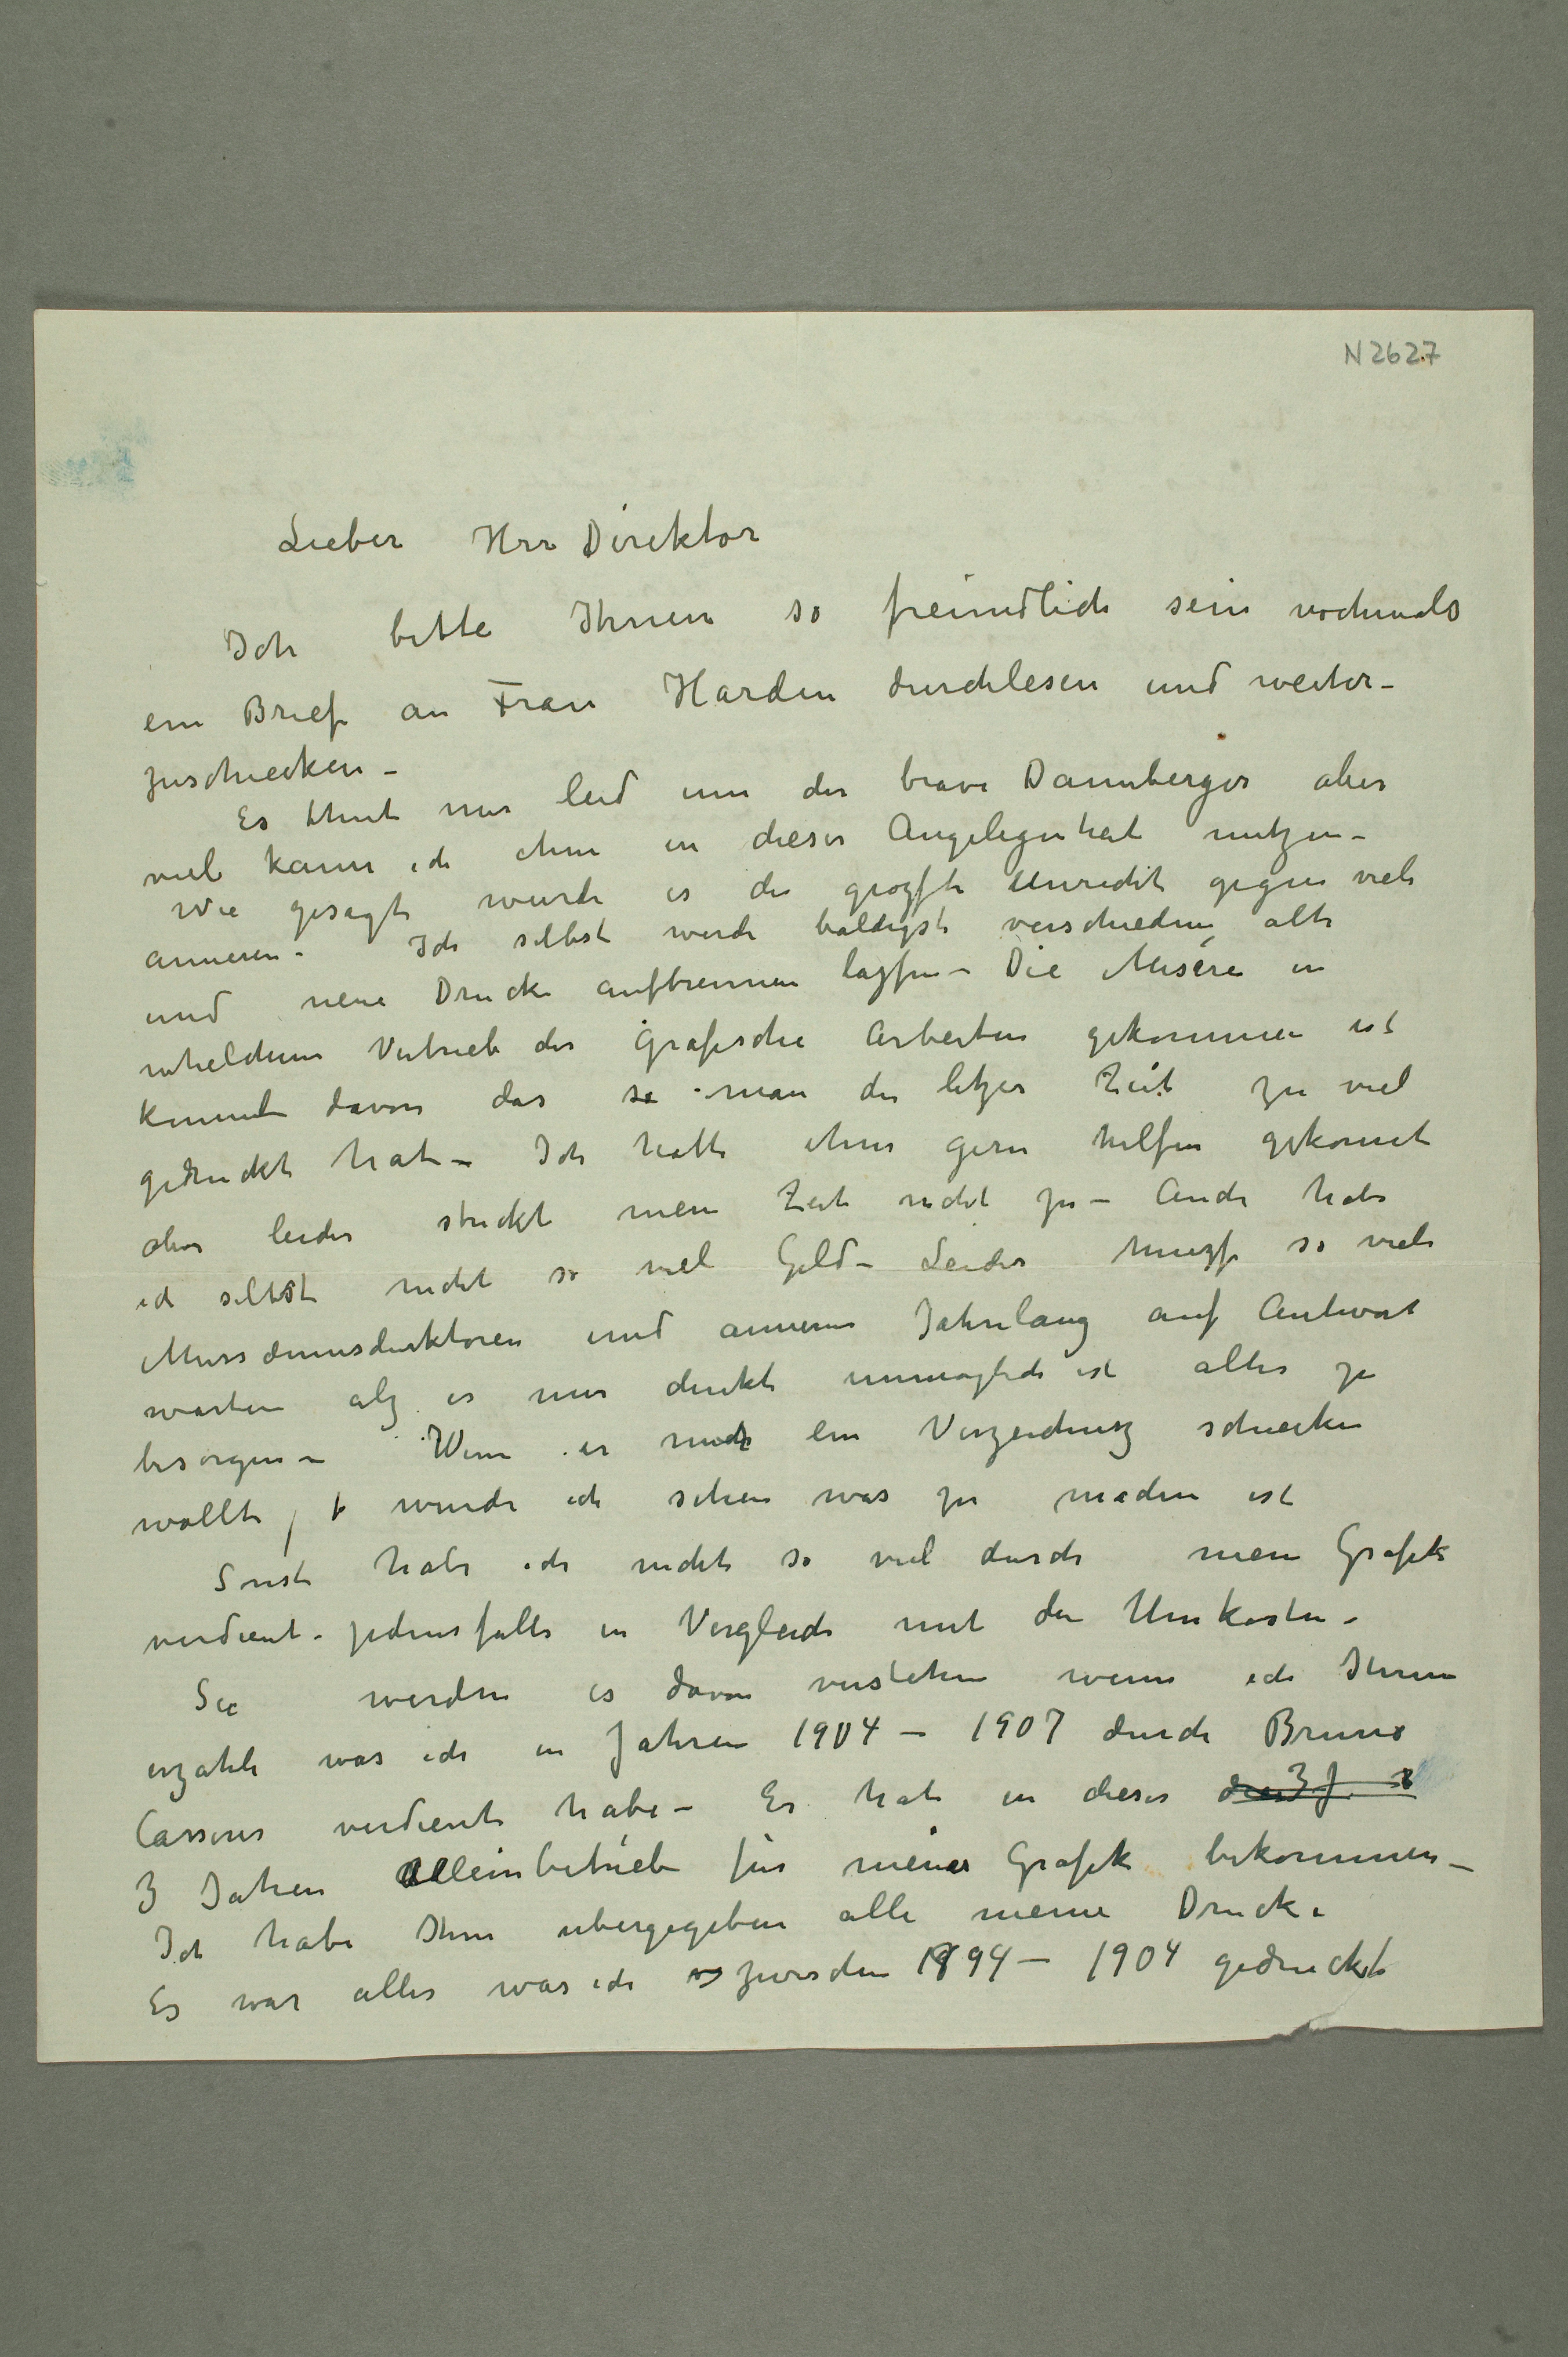 N 2627
Lieber Herr Direktor
Ich bitte Ihnen so freundlich sein nochmals
ein Brief an Frau Harden durchlesen und weiter-
zuschiecken –
Es thut mir leid um der brave Dannberger aber
viel kann ich ihm in dieser Angelegenheit nutzen –
Wie gesagt wurde es die grozfte Unrecht gegen viele
anneren. Ich selbst werde baldigst verschiedene alte
und neue Drucke aufbrennen lazfen – Die Misére in
whelchem Vertrieb der Grafische Arbeiten gekommen ist
kommt davon das so man der letzer Zeit zu viel
gedruckt hat – Ich hatte ihm gern helfen gekonnt
aber leider streckt mein Zeit nicht zu – Auch habe
ich selbst nicht so viel Geld – Leider muzf so viele
Mussæumsdirektoren und anneren Jahrelang auf Antwort
warten alz es mir direkte unmöglich ist alles zu
besorgen – Wenn er mich ein Verzeichnisz schiecken
wollte, wurde ich sehen was zu machen ist
Sonst habe ich nicht so viel durch mein Grafik
verdient – jedensfalls in Vergleich mit den Unkosten –
Sie werden es davon verstehen wenn ich Ihnen
erzahle was ich in Jahren 1904 – 1907 durch Bruno
Cassirer verdient habe – Er hat in dieser
3 Jahren Alleinbetrieb für meine Grafik bekommen –
Ich habe Ihm ubergegeben alle meine Drucke
Es war alles was ich zwischen 1894 – 1904 gedruckt